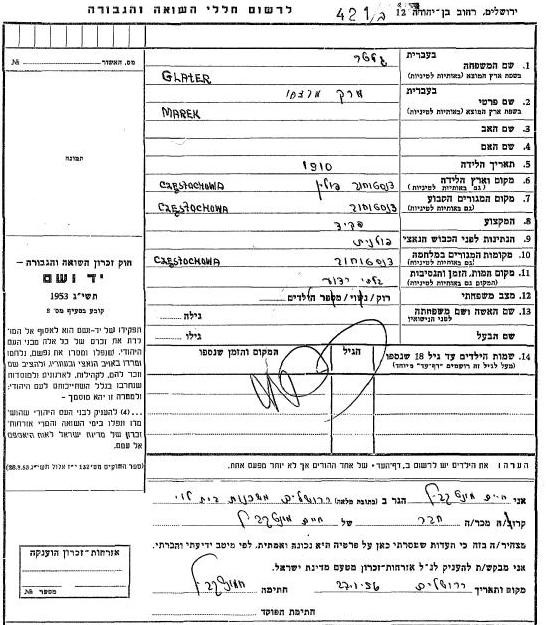 לרשום חללי השואה והגבורה
421
ירושלים, רחוב בן־יהודה 12
מס. האשור
№
תמונה
חוק זכרון השואה והגבורה –
יד ושם
תשי״ג 1953
קובע בסעיף מס׳ 2
תפקידו של יד־ושם הוא לאסוף אל המו־
לדת את זכרם של כל אלה מבני העם
היהודי, שנפלו ומסרו את נפשם, נלחמו
ומרדו באויב הנאצי ובעוזריו, ולהציב שם
וזכר להם, לקהילות, לארגונים ולמוסדות
שנחרבו בגלל השתייכותם לעם היהודי;
ולמטרה זו יהא מוסמך –
(4)... להעניק לבני העם היהודי שהוש־
מדו ונפלו בימי השואה והמרי אזרחות־
זכרון של מדינת ישראל לאות היאספם
אל עמם.
אזרחות־זכרון הוענקה
מספר №
1. שם המשפחה בעברית גלטר
(באותיות לטיניות) GLATER
2. שם פרטי בעברית מרק
(באותיות לטיניות) MAREK
3. שם האב
4. שם האם
5. תאריך הלידה 1910
6. מקום וארץ הלידה (גם באותיות לטיניות) צ'נסטוחוב פולין CZĘSTOCHOWA
7. מקום המגורים הקבוע (גם באותיות לטיניות) צ'נסטוחוב CZĘSTOCHOWA
8. המקצוע פקיד
9. הנתינות לפני הכבוש הנאצי פולנית
10. מקומות המגורים במלחמה (גם באותיות לטיניות) צ'נסטוחוב CZĘSTOCHOWA
11. מקום המות, הזמן והנסיבות (המקום גם באותיות לטיניות) בלתי ידוע
12. מצב משפחתי רוק/נשוי/מספר הילדים
13. שם האשה ושם משפחתה לפני הנישואין גילה
שם הבעל גילו
14. שמות הילדים עד גיל 18 שנספו הגיל המקום והזמן שנספו
(מעל לגיל זה רושמים ״דף־עד״ מיוחד)
הערה: את הילדים יש לרשום ב״דף־העד״ של אחד ההורים אך לא יותר מפעם אחת.
אני חיים הגר ב (כתובת מלאה) ירושלים משכנות
קרוב/ה מכר/ה חבר של חיים
מצהיר/ה בזה כי העדות שמסרתי כאן על פרטיה היא נכונה ואמתית, לפי מיטב ידיעתי והכרתי.
אני מבקש/ת להעניק לנ״ל אזרחות־זכרון מטעם מדינת ישראל.
מקום ותאריך ירושלים 22.1.56 חתימה
חתימת הפוקד